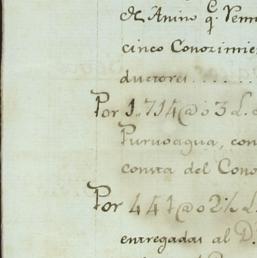 el Anino q.
cinco Conozimie
ductores. . . . . . .
Por 1.714@ó 3 L.
Puruoagua, con
consta del Cono
Por 441@ó 2½ L.
entregadas al D.